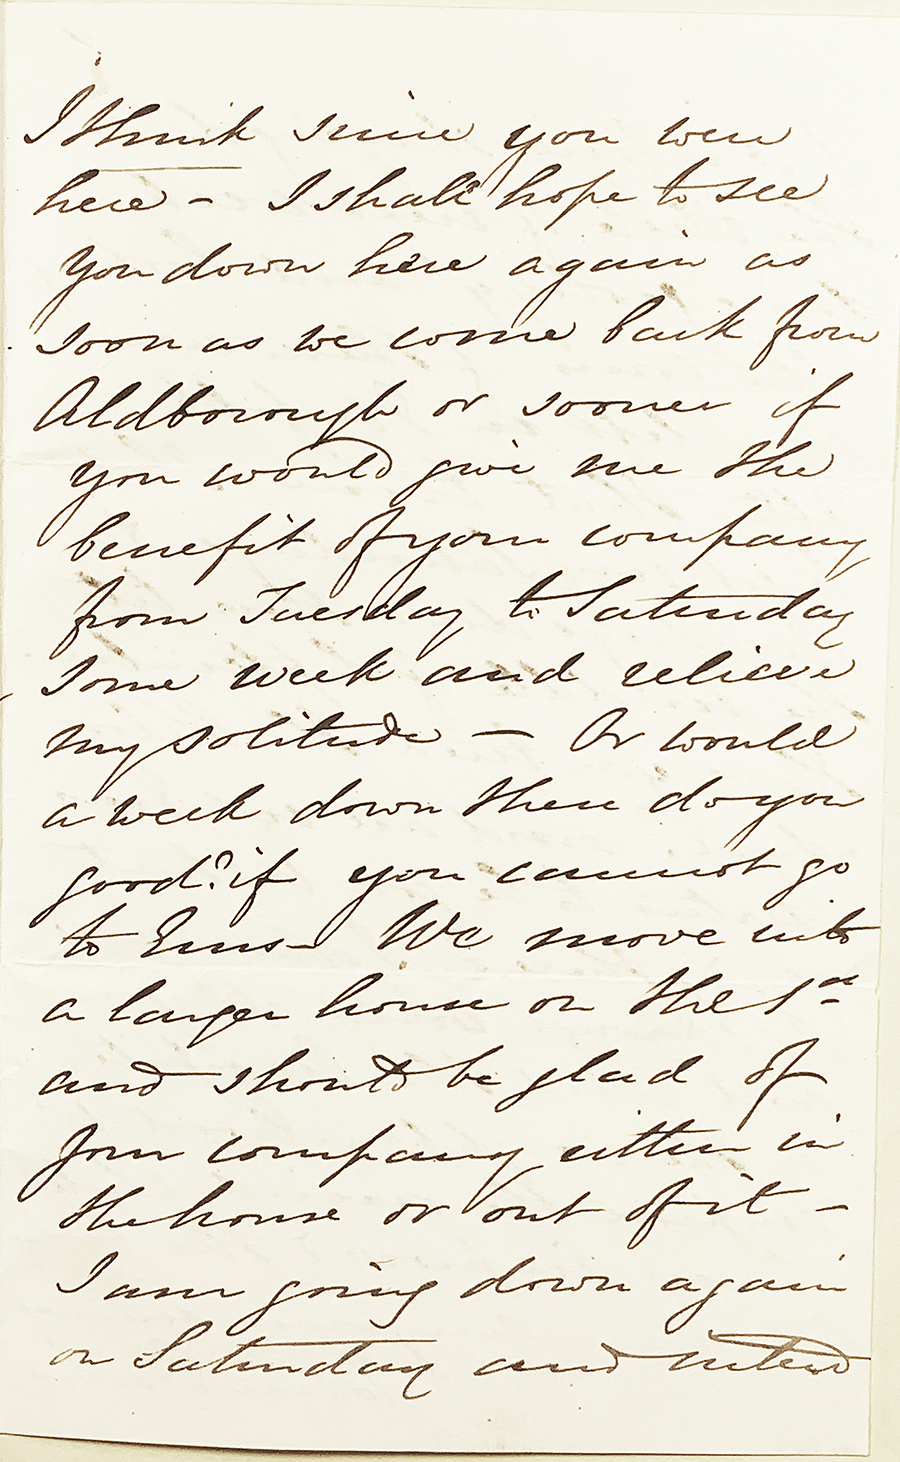 I think since you were
here - I shall hope to see
you down here again as
soon as we come back from
Aldborough or sooner if
you would give me the
benefit of your company
from Tuesday to Saturday
some week and relieve
my solitude - Or would
a week down there do you
good? if you cannot go
to Ems - We move into
a larger house on the 1st
and should be glad of
your company either in
the house or out of it -
I am going down again
on Saturday and intend